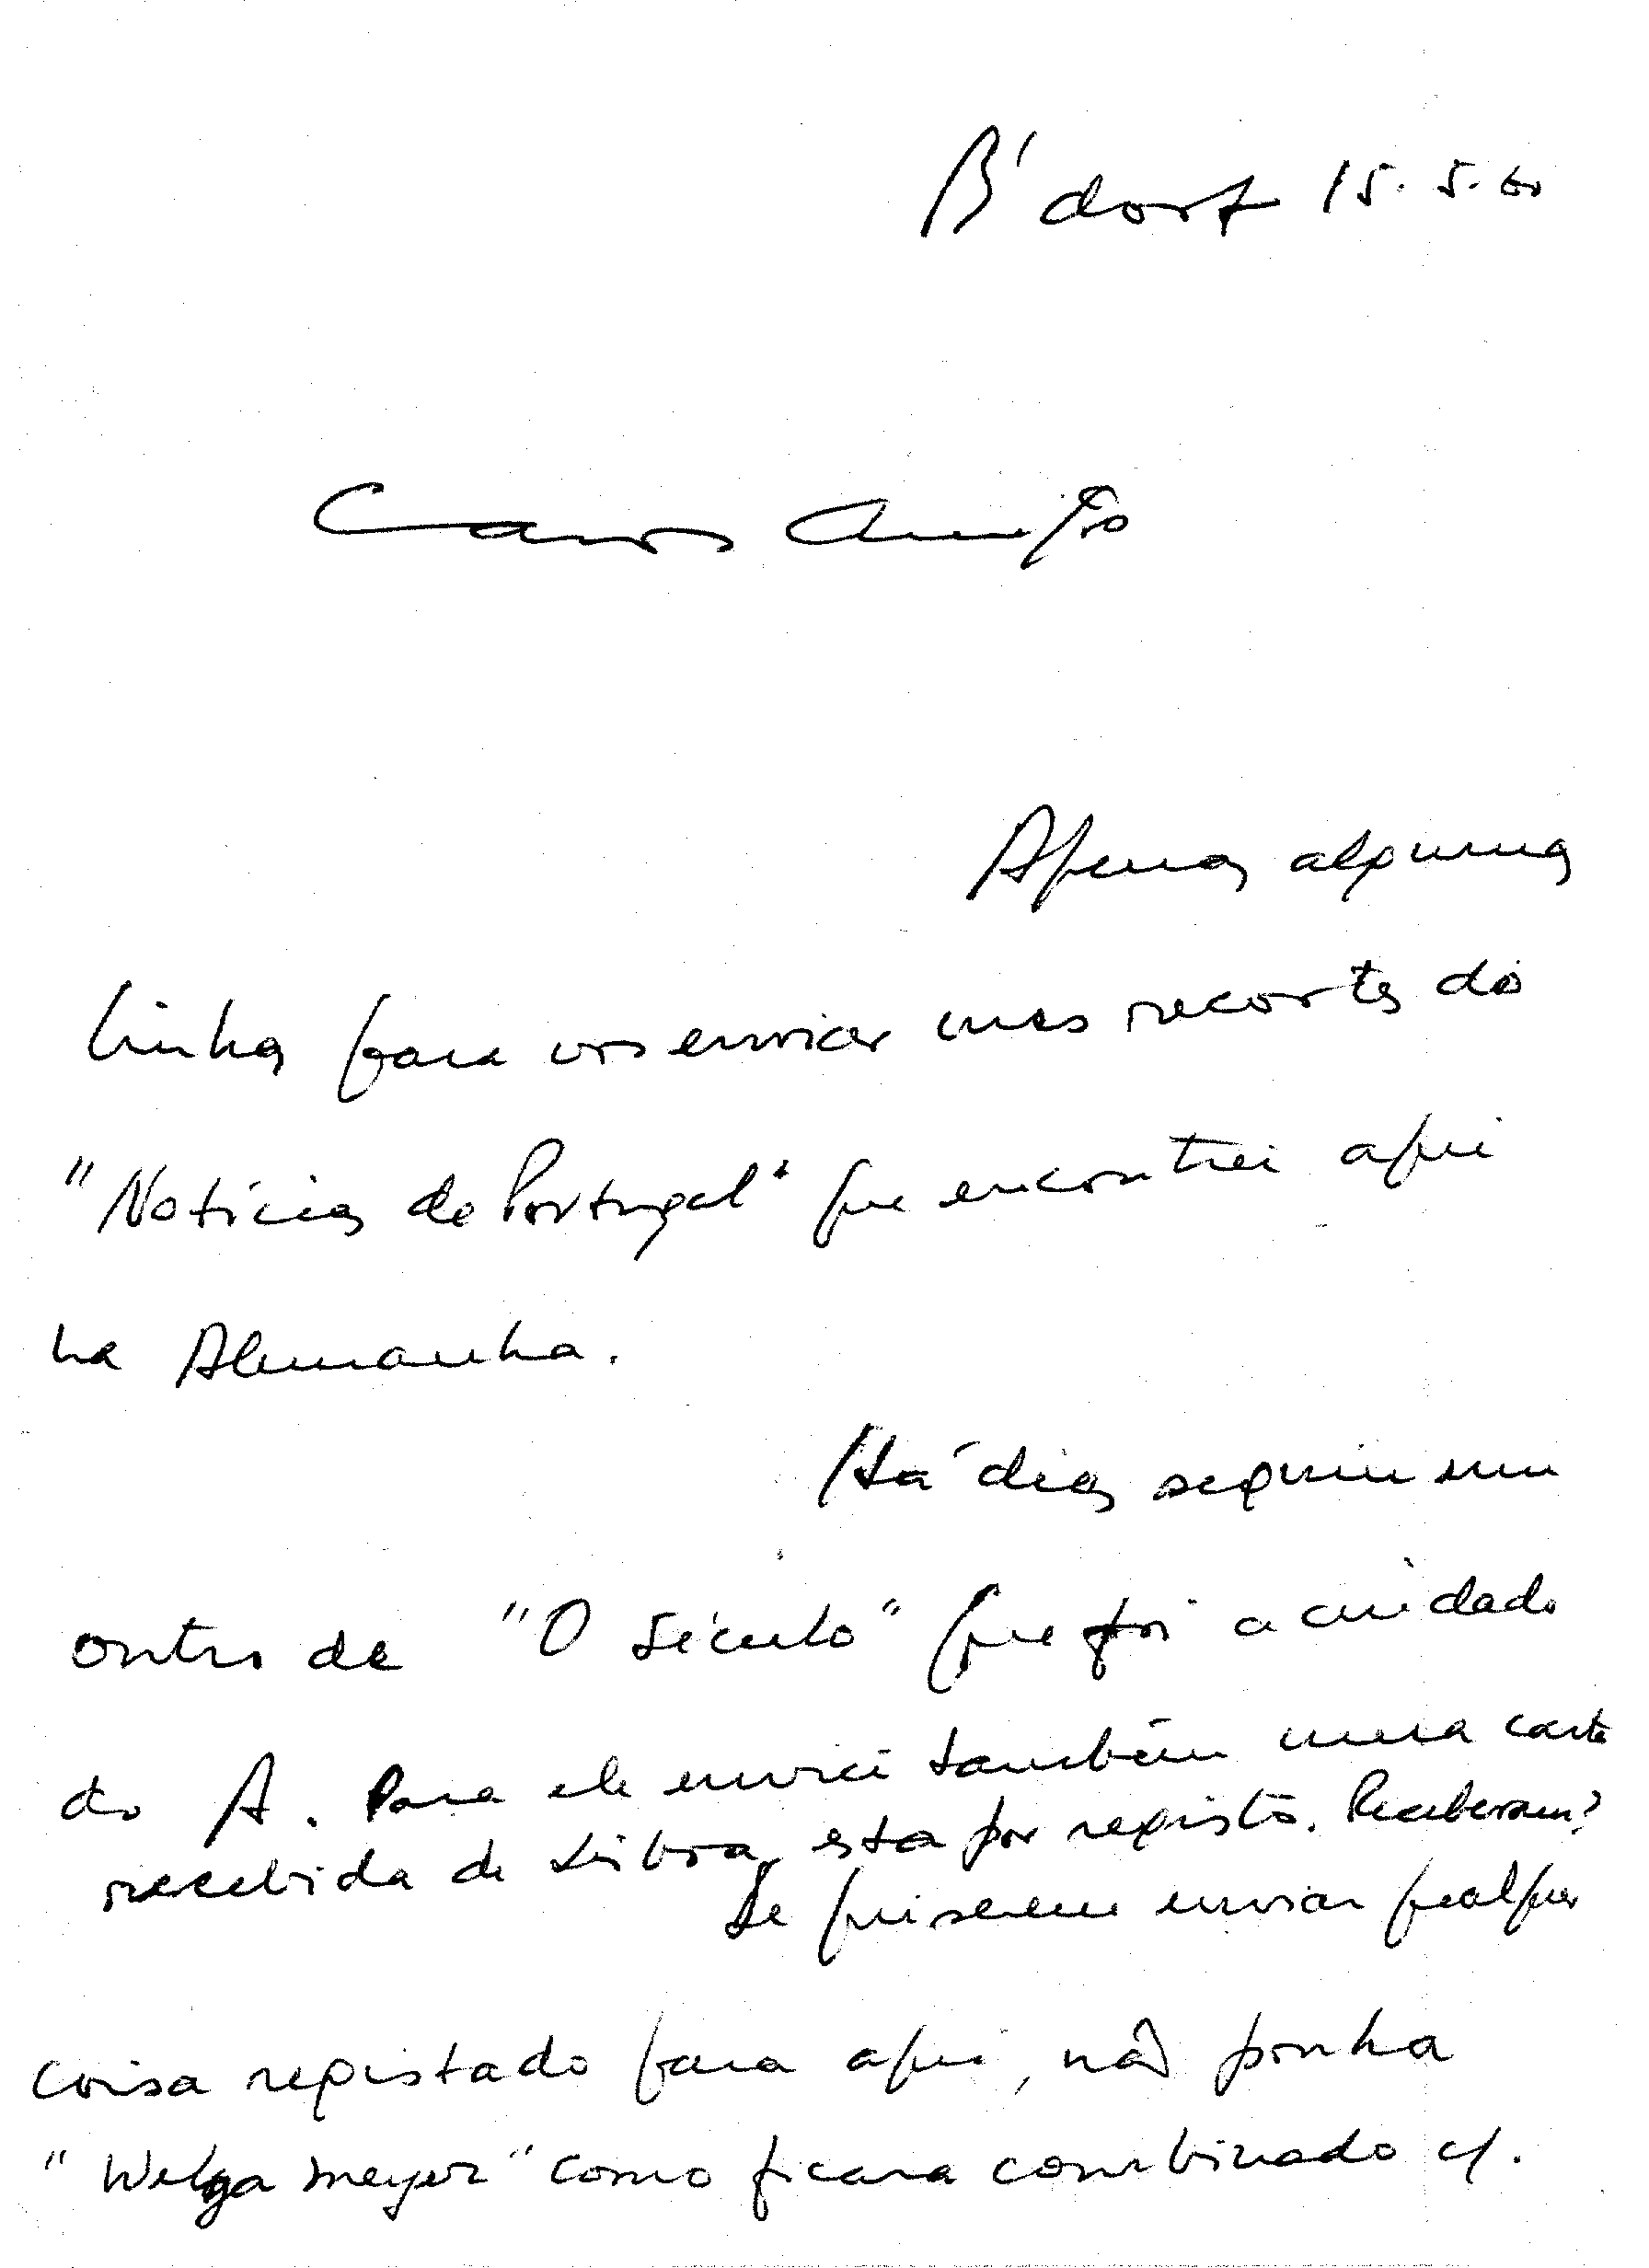 B'dorf 15.5.60
Caros Amigos
Apenas algumas
linhas para vos enviar uns recortes do
"Notícias de Portugal" que encontrei aqui
na Alemanha.
Há dias seguiu um
outro de "O Século" que foi ao cuidado
do A. Para ele enviei também uma carta
recebida de Lisboa, esta por registo. Receberam?
Se quiserem enviar qualquer
coisa registado para aqui, não ponha
"Welga Meyer" como ficara combinado c/.